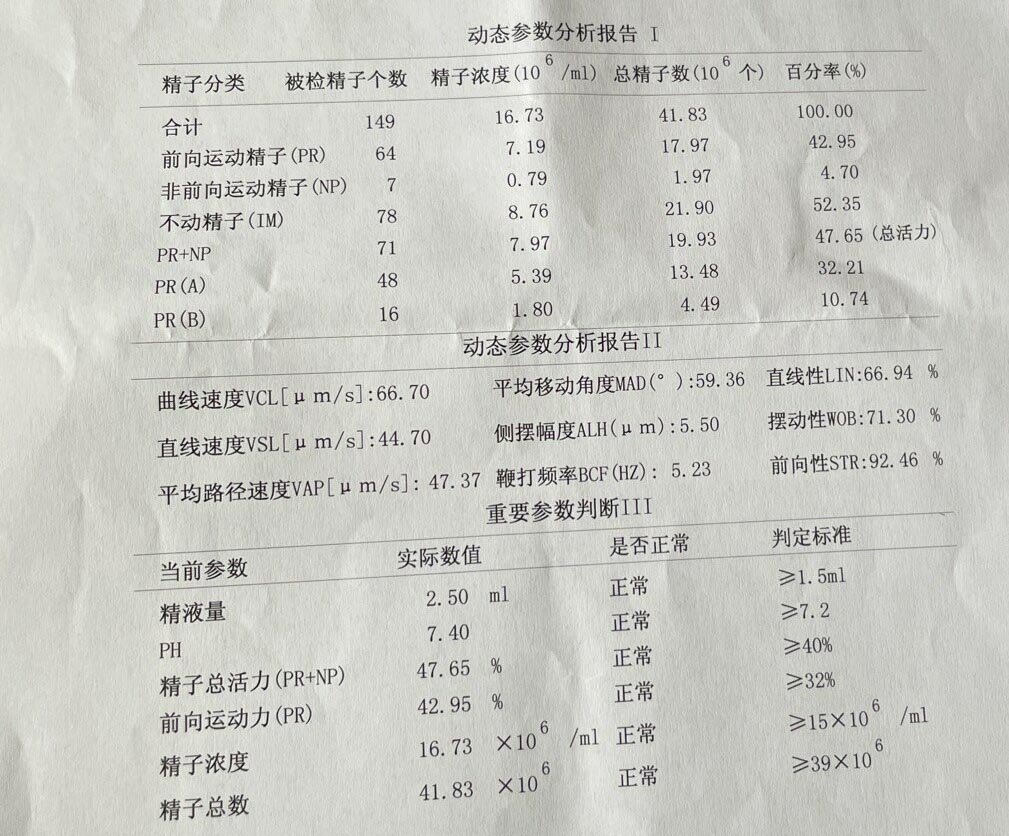 动态参数分析报告 I
精子分类 被检精子个数 精子浓度(10⁶/ml) 总精子数(10⁶个) 百分率(%)
合计 149 16.73 41.83 100.00
前向运动精子(PR) 64 7.19 17.97 42.95
非前向运动精子(NP) 7 0.79 1.97 4.70
不动精子(IM) 78 8.76 21.90 52.35
PR+NP 71 7.97 19.93 47.65(总活力)
PR(A) 48 5.39 13.48 32.21
PR(B) 16 1.80 4.49 10.74
动态参数分析报告II
曲线速度VCL[μm/s]:66.70 平均移动角度MAD(°):59.36 直线性LIN:66.94 %
直线速度VSL[μm/s]:44.70 侧摆幅度ALH(μm):5.50 摆动性WOB:71.30 %
平均路径速度VAP[μm/s]: 47.37 鞭打频率BCF(HZ): 5.23 前向性STR:92.46 %
重要参数判断III
当前参数 实际数值 是否正常 判定标准
精液量 2.50 ml 正常 ≥1.5ml
PH 7.40 正常 ≥7.2
精子总活力(PR+NP) 47.65 % 正常 ≥40%
前向运动力(PR) 42.95 % 正常 ≥32%
精子浓度 16.73 ×10⁶ /ml 正常 ≥15×10⁶ /ml
精子总数 41.83 ×10⁶ 正常 ≥39×10⁶